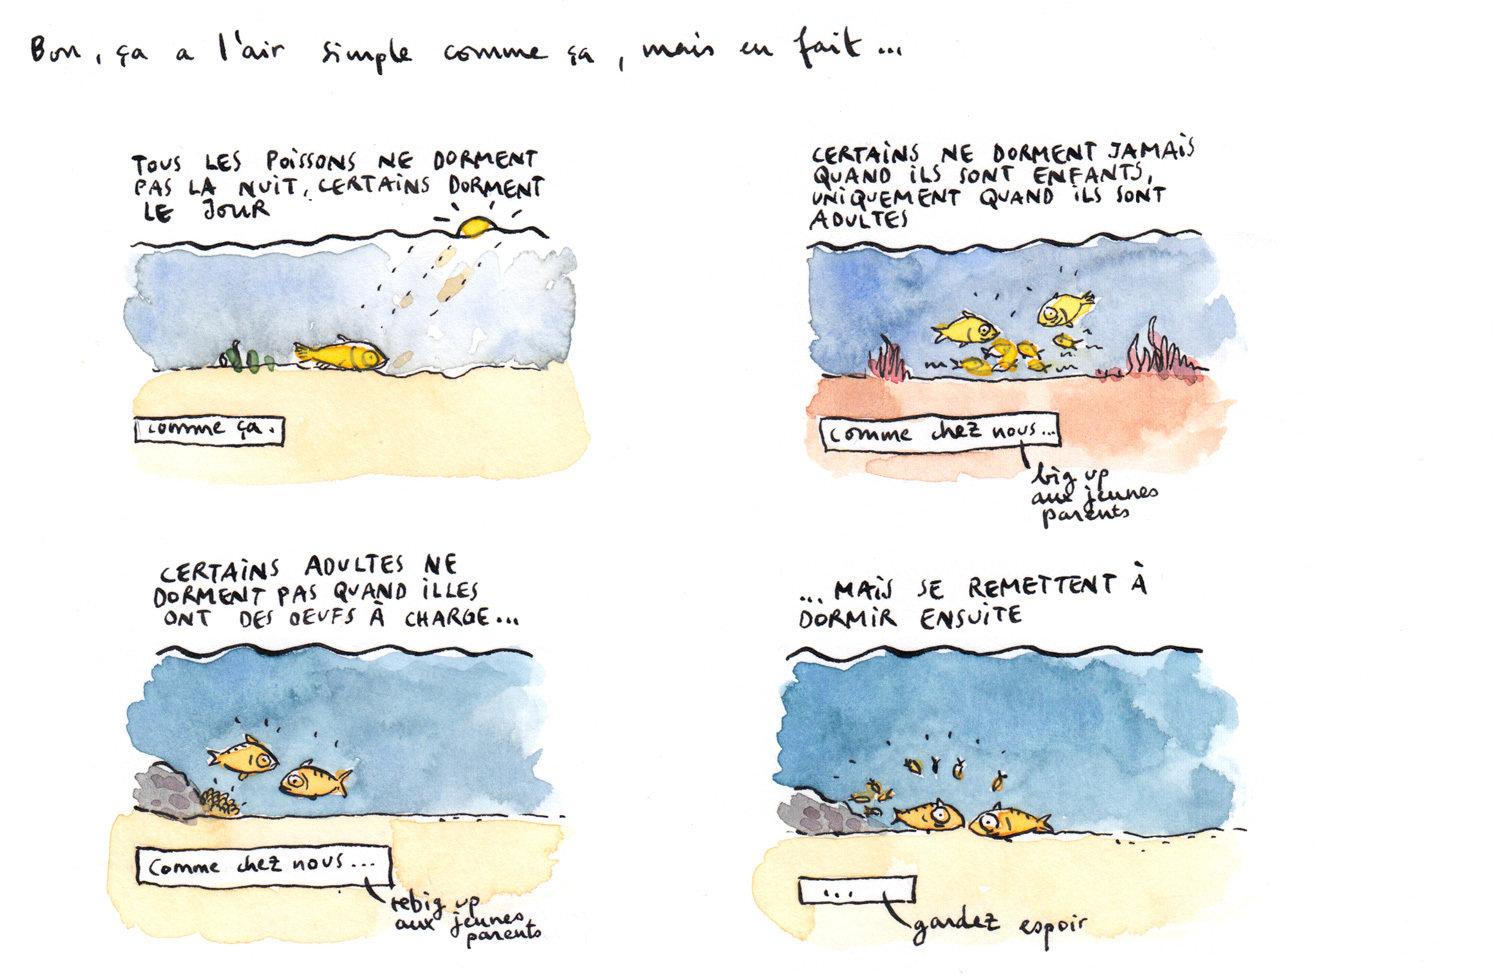 Bon, ça a l'air simple comme ça, mais en fait...
TOUS LES POISSONS NE DORMENT
PAS LA NUIT, CERTAINS DORMENT
LE JOUR
comme ça.
CERTAINS NE DORMENT JAMAIS
QUAND ILS SONT ENFANTS,
UNIQUEMENT QUAND ILS SONT
ADULTES
comme chez nous...
big up
aux jeunes
parents
CERTAINS ADULTES NE
DORMENT PAS QUAND ILLES
ONT DES OEUFS À CHARGE...
Comme chez nous...
rebig up
aux jeunes
parents
... MAIS SE REMETTENT À
DORMIR ENSUITE
...
gardez espoir